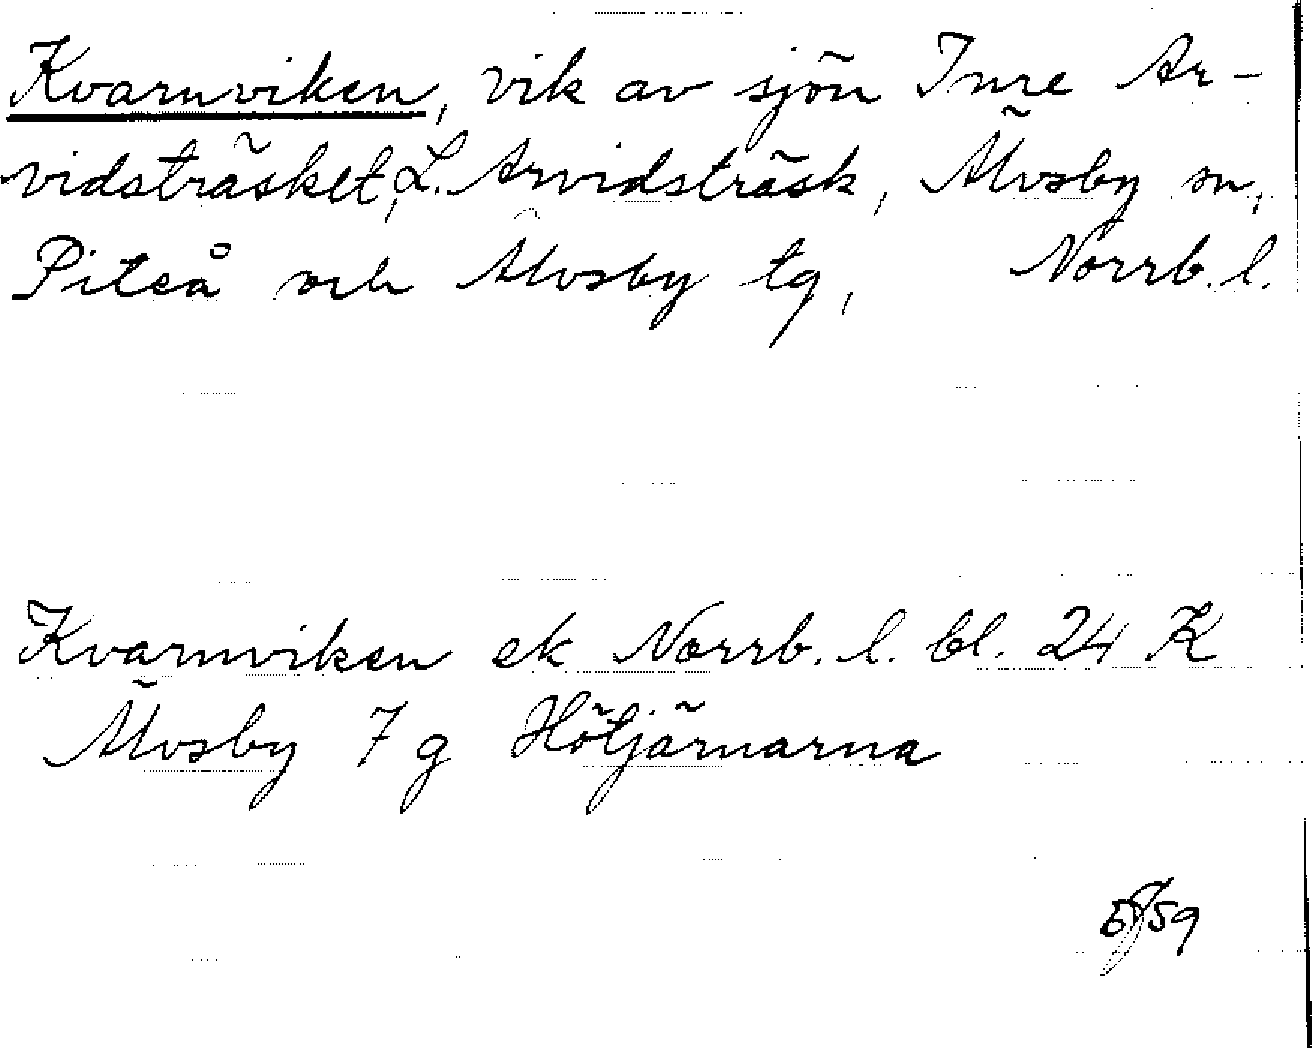 Kvarnviken, vik av sjön Inre Ar-
vidsträsket, L. Arvidsträsk, Älvsby sn,
Piteå och Älvsby tg, Norrb. l.
Kvarnviken ek Norrb. l. bl. 24 K
Älvsby 7 g Hötjärnarna